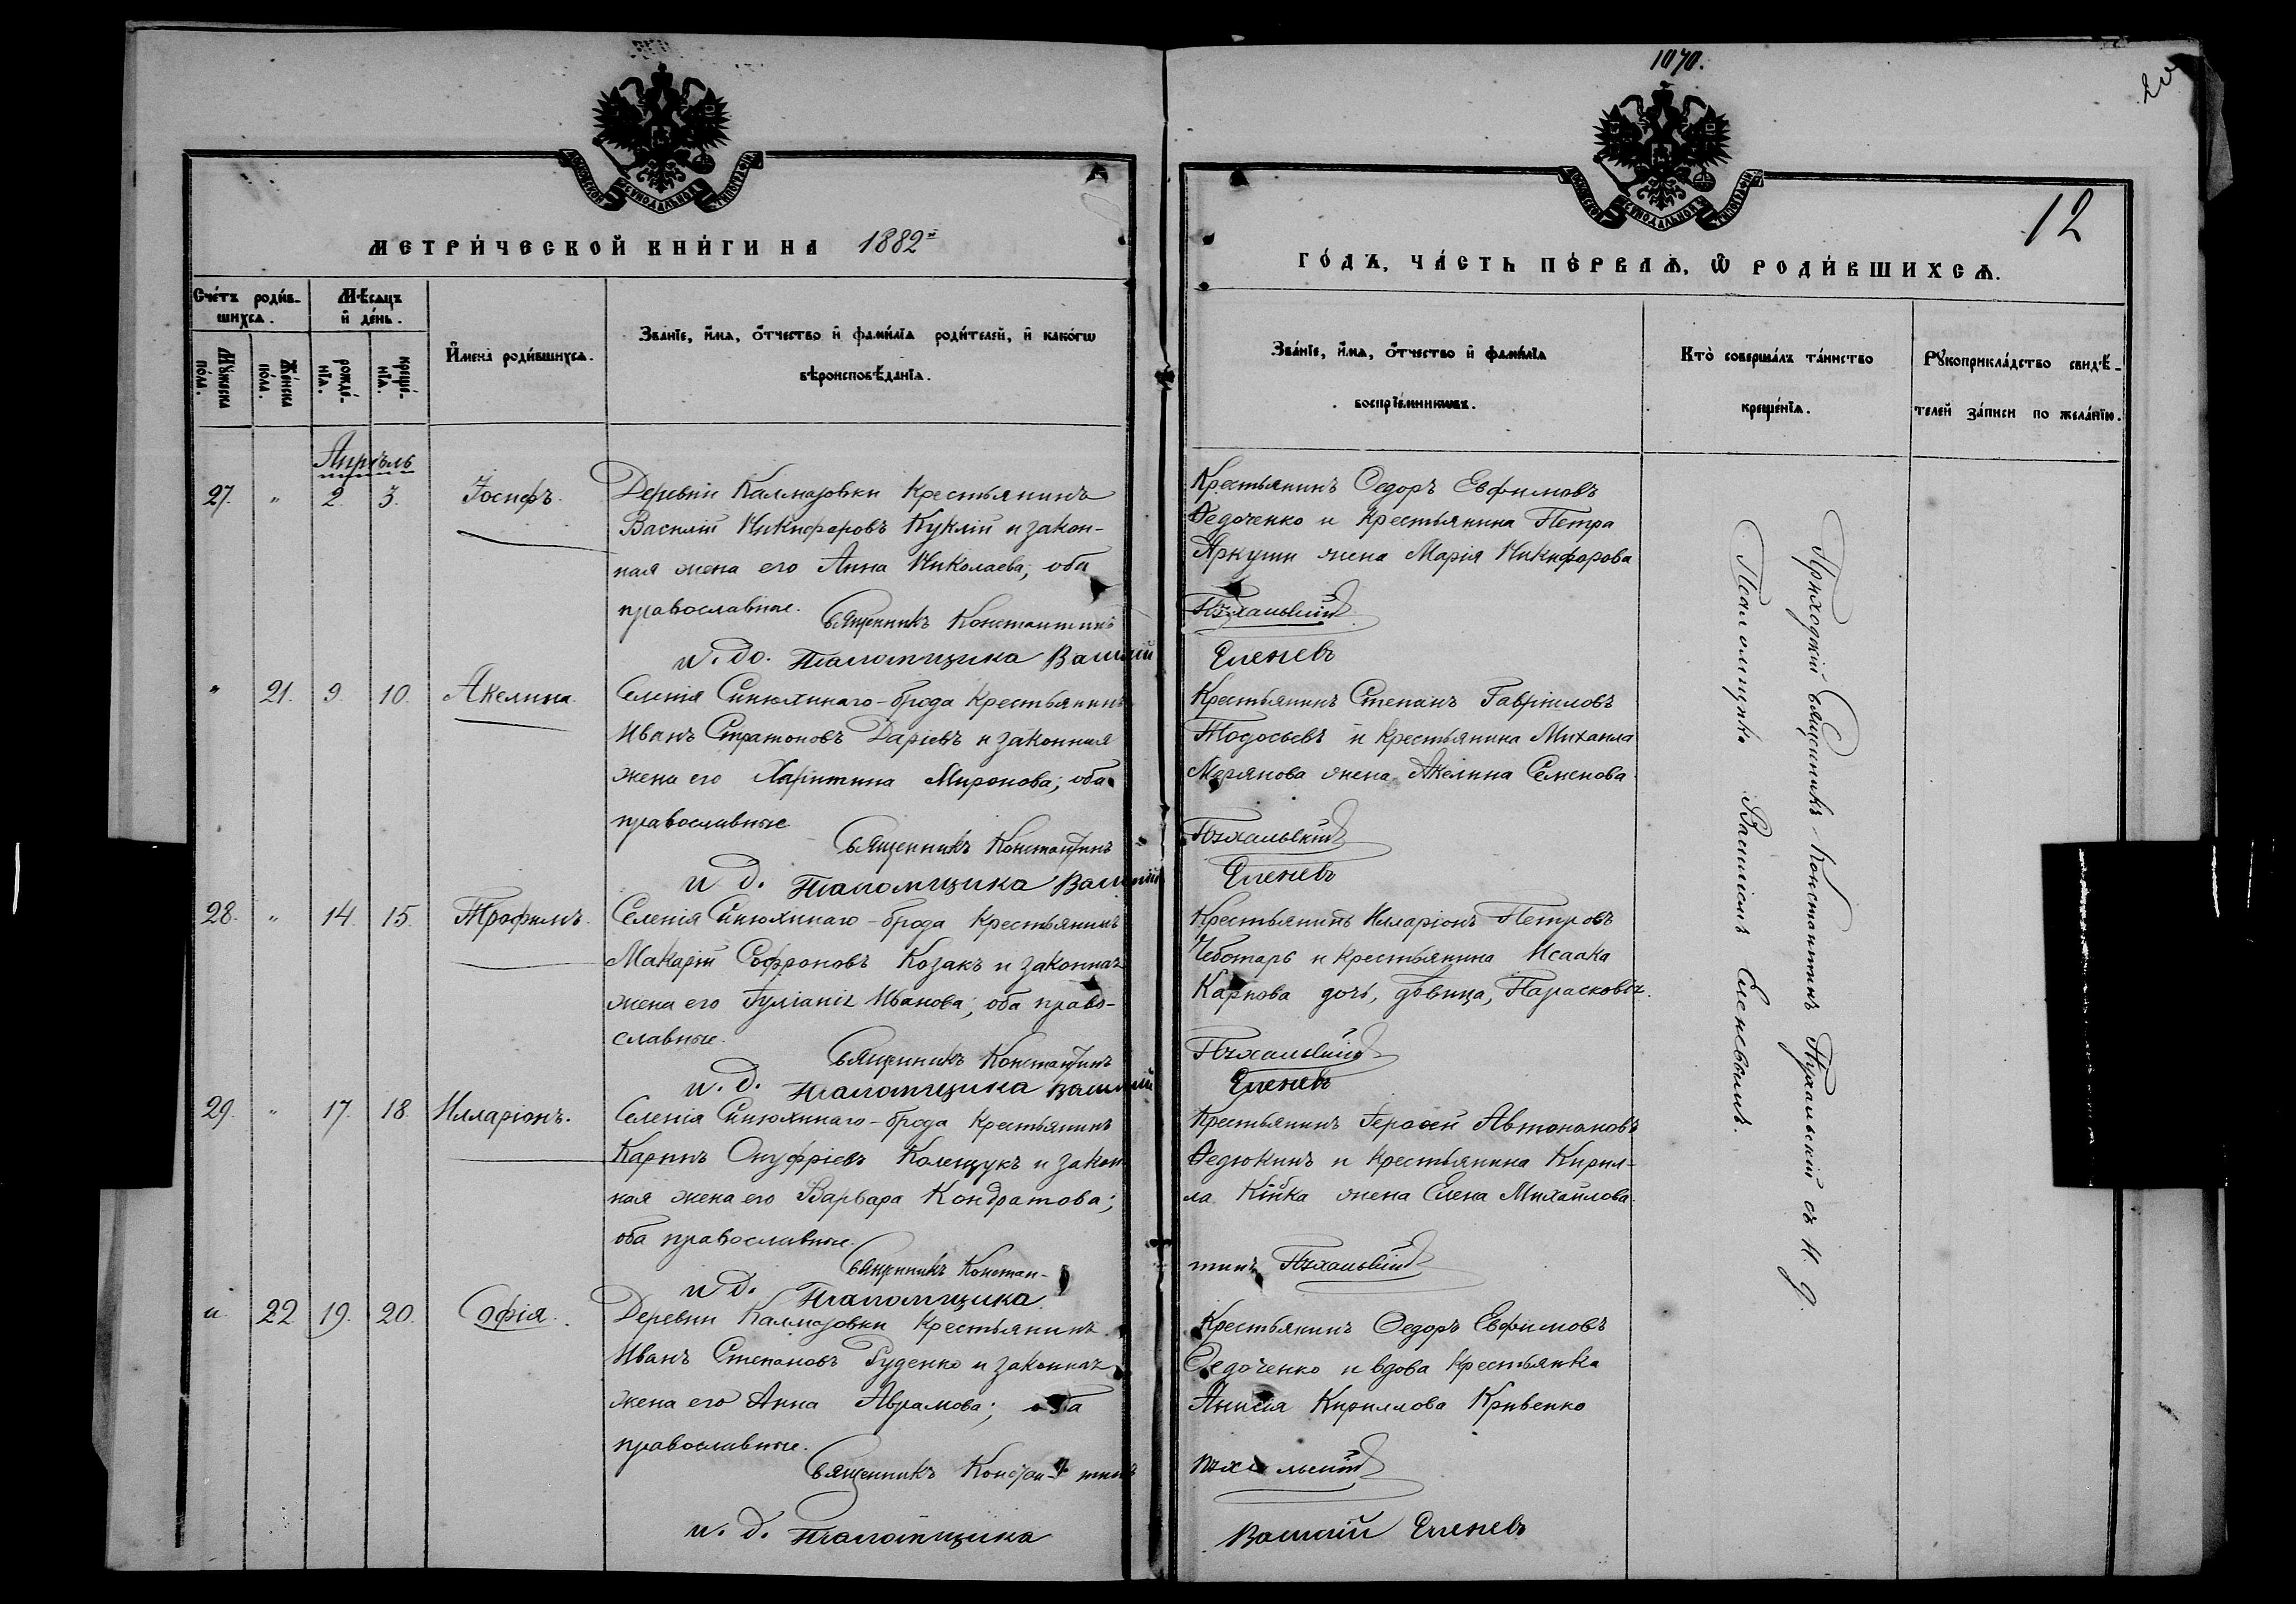 1070.
12
МЕТРИЧЕСКОЙ КНИГИ НА 1882й
ГОДЪ, ЧАСТЬ ПЕРВАЯ, Ѡ РОДИВШИХСЯ.
Счетъ родив-
шихся.
Мѣсяцъ
и день.
Мужеска
пола.
Женска
пола.
рожде-
нїя.
креще-
нїя.
Имена родившихся.
Званїе, имя, отчество и фамилїя родителей, и какогѡ
вѣроисповѣданїя.
Званїе, имя, отчество и фамилїя
воспрїемниковъ.
Кто совершалъ таинство
крещенїя.
Рукоприкладство свидѣ-
телей записи по желанїю.
Апрѣль
27. " 2. 3. Іосифъ.
Деревни Калмазовки Крестьянинъ
Василій Никифоровъ Куклій и закон-
ная жена его Анна Николаева; оба
православные.
Священникъ Константинъ
и. до. Псаломщика Василій
Крестьянинъ Ѳедоръ Евфимовъ
Ѳедоченко и крестьянина Петра
Яркуши жена Марія Никифорова
Пухальскій
Еленевъ
" 21. 9. 10. Акелина.
Селенія Синюхинаго-брода Крестьянинъ
Иванъ Стратоновъ Даріевъ и законная
жена его Харитина Миронова; оба
православные
Священникъ Константинъ
и д. Псаломщика Василій
Крестьянинъ Степанъ Гавріиловъ
Тодосьевъ и крестьянина Михаила
Морянова жена Акелина Семенова
Пухальскій
Еленевъ
28. " 14. 15. Трофимъ.
Селенія Синюхинаго-брода Крестьянинъ
Макарій Софроновъ Козакъ и законная
жена его Гуліанія Иванова; оба право-
славные.
Священникъ Константинъ
и. д. Псаломщика Василій
Крестьянинъ Илларіонъ Петровъ
Чеботарь и крестьянина Исаака
Карпова дочь, дѣвица, Парасковія.
Пухальскій
Еленевъ
29. " 17. 18. Илларіонъ.
Селенія Синюхинаго-брода Крестьянинъ
Карпъ Онуфріевъ Колещукъ и закон-
ная жена его Варвара Кондратова;
оба православные.
Священникъ Констан-
и д. Псаломщика
Крестьянинъ Герасей Автономовъ
Ѳедюкинъ и крестьянина Кирил-
ла Кійка жена Елена Михайлова.
тинъ Пухальскій
" 22 19. 20. Софія.
Деревни Калмазовки Крестьянинъ
Иванъ Степановъ Руденко и законная
жена его Анна Аврамова; оба
православные.
Священникъ Константинъ
и. д. Псаломщика
Крестьянинъ Ѳедоръ Евфимовъ
Ѳедоченко и вдова крестьянка
Анисія Кириллова Кривенко
Пухальскій
Василій Еленевъ
Приходскій Священникъ Константинъ Пухальскій съ И. д.
Псаломщика Василіемъ Еленевымъ.